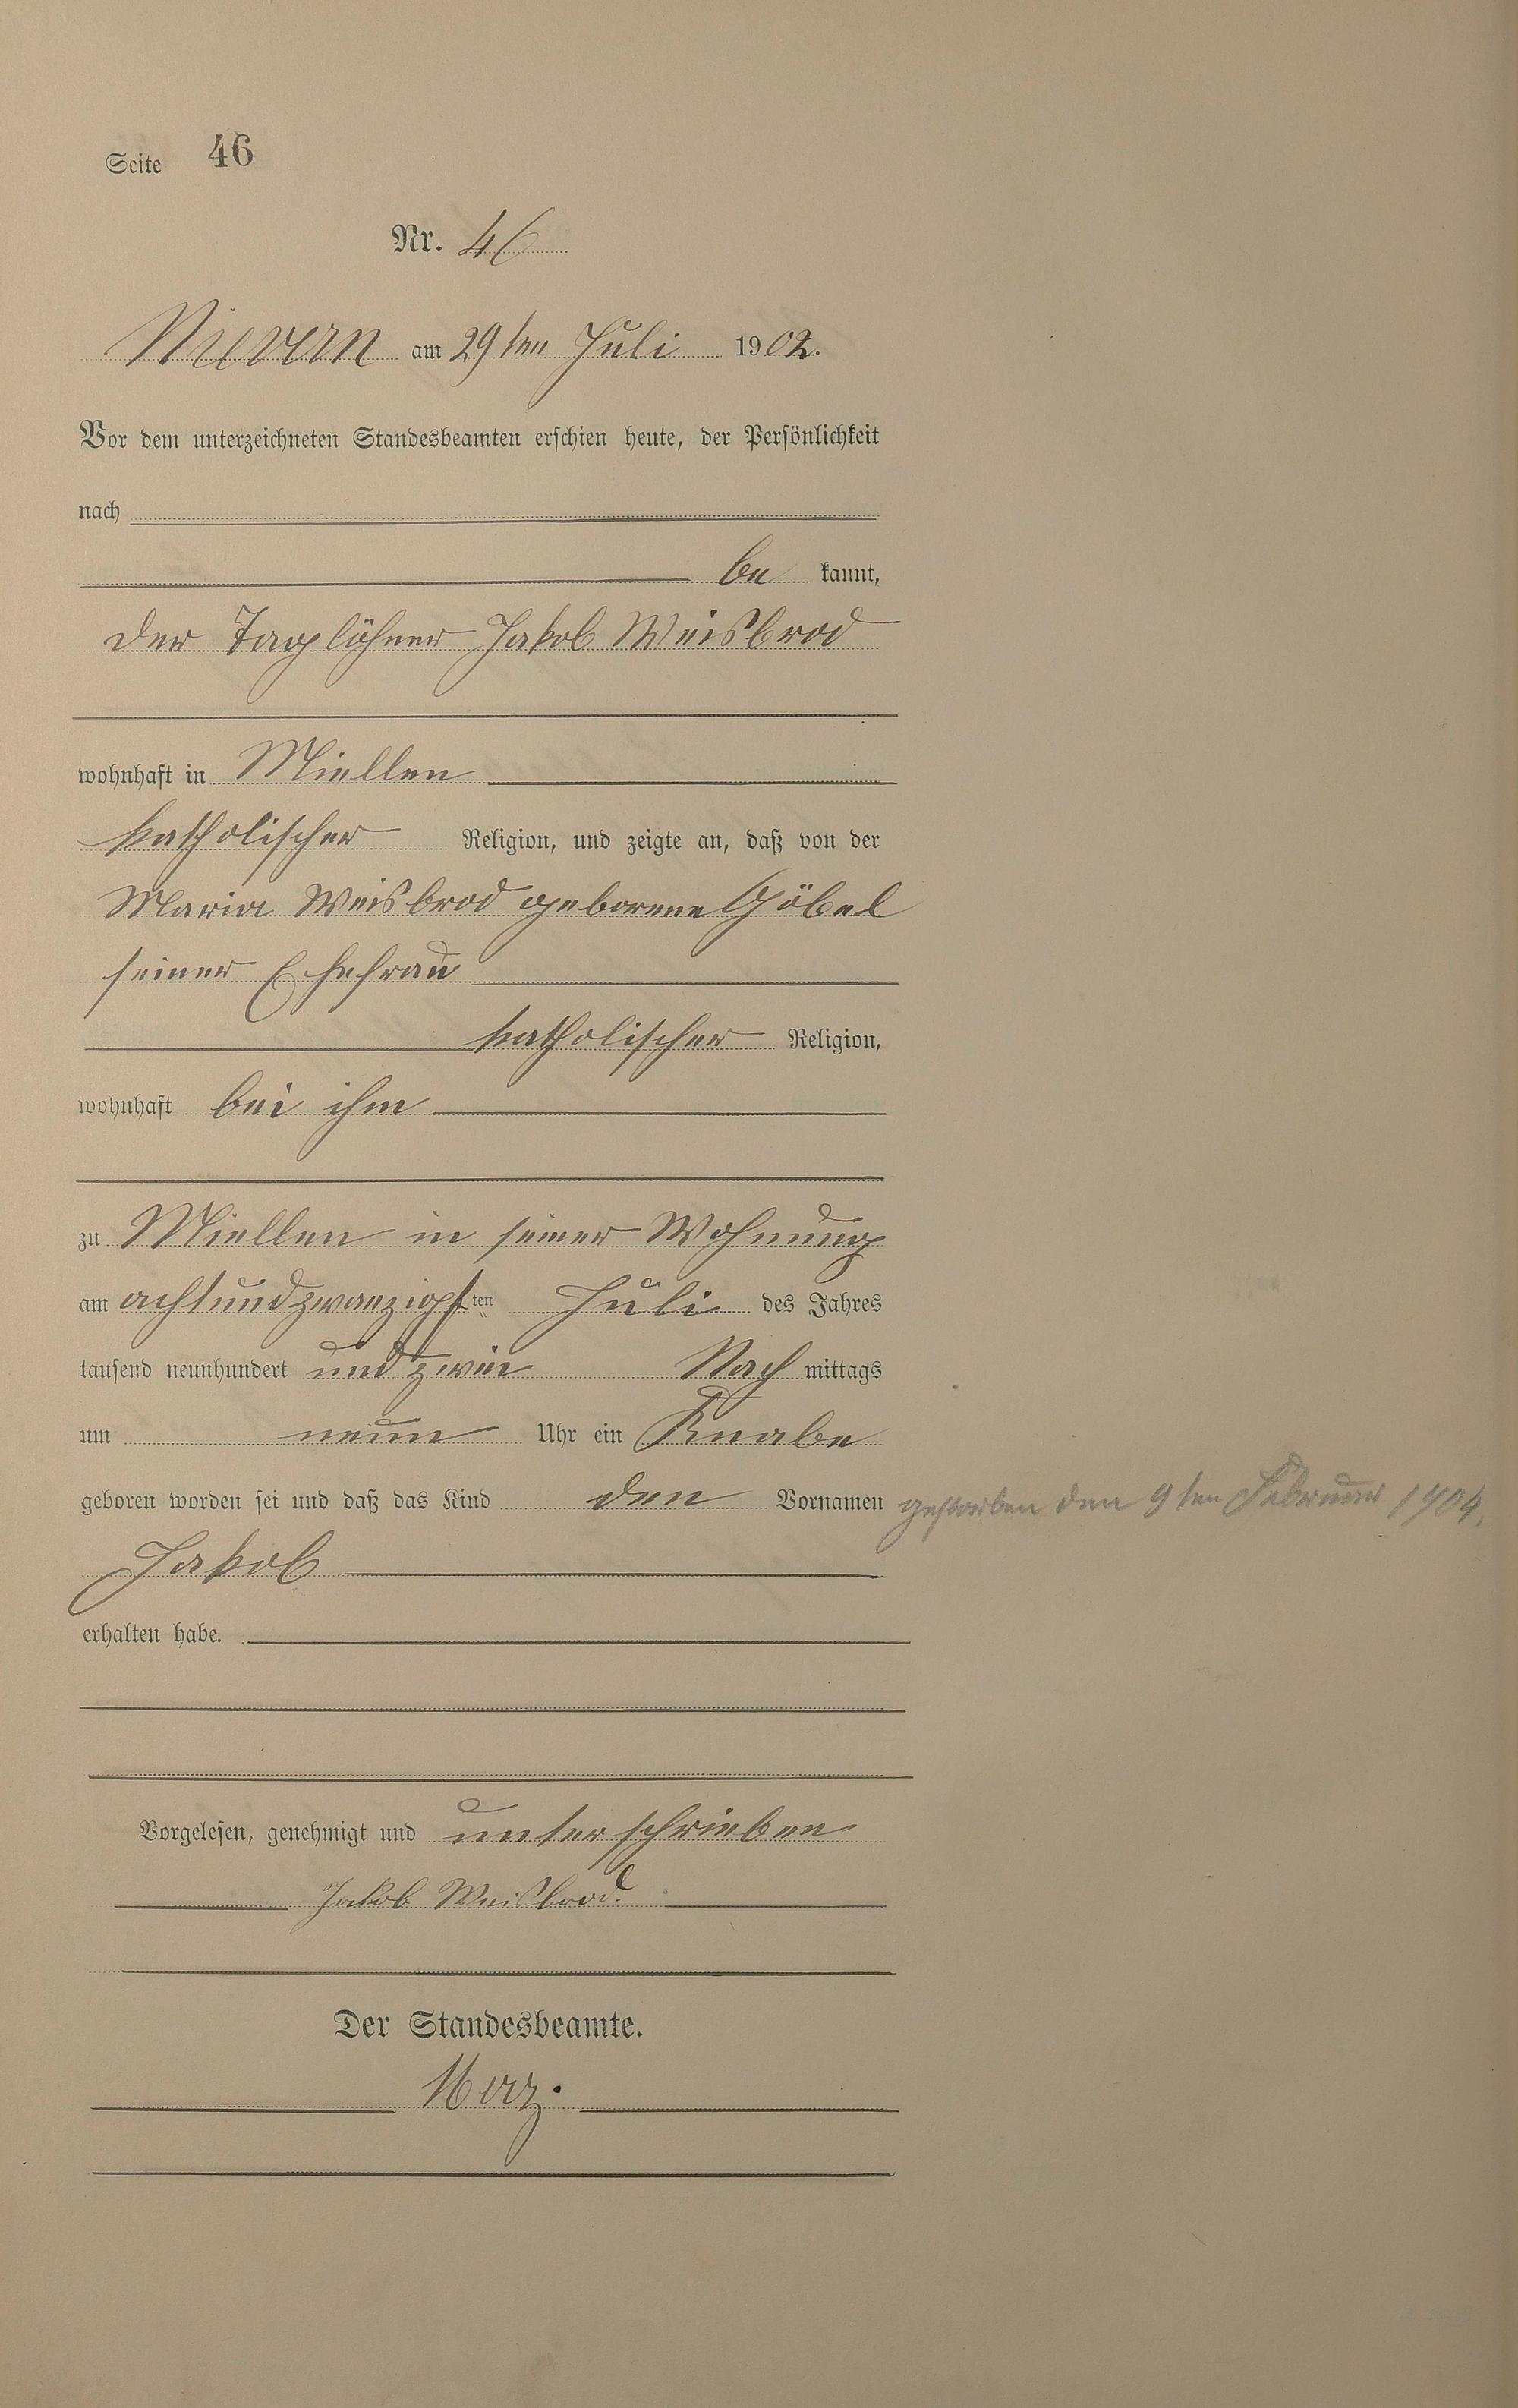 Seite 46
Nr. 46
Nievern am 29ten Juli 1902.
Vor dem unterzeichneten Standesbeamten erschien heute, der Persönlichkeit
nach
be kannt,
der Taglöhner Jakob Weisbrod
wohnhaft in Miellen
katholischer Religion, und zeigte an, daß von der
Maria Weisbrod geborene Göbel
seiner Ehefrau
katholischer Religion,
wohnhaft bei ihm
zu Miellen in seiner Wohnung
am achtundzwanzigsten Juli des Jahres
tausend neunhundert und zwei Nach mittags
um neun Uhr ein Knabe
geboren worden sei und daß das Kind den Vornamen gestorben den 9ten Februar 1904.
Jakob
erhalten habe.
Vorgelesen, genehmigt und unterschrieben
Jakob Weisbrod.
Der Standesbeamte.
Merz.